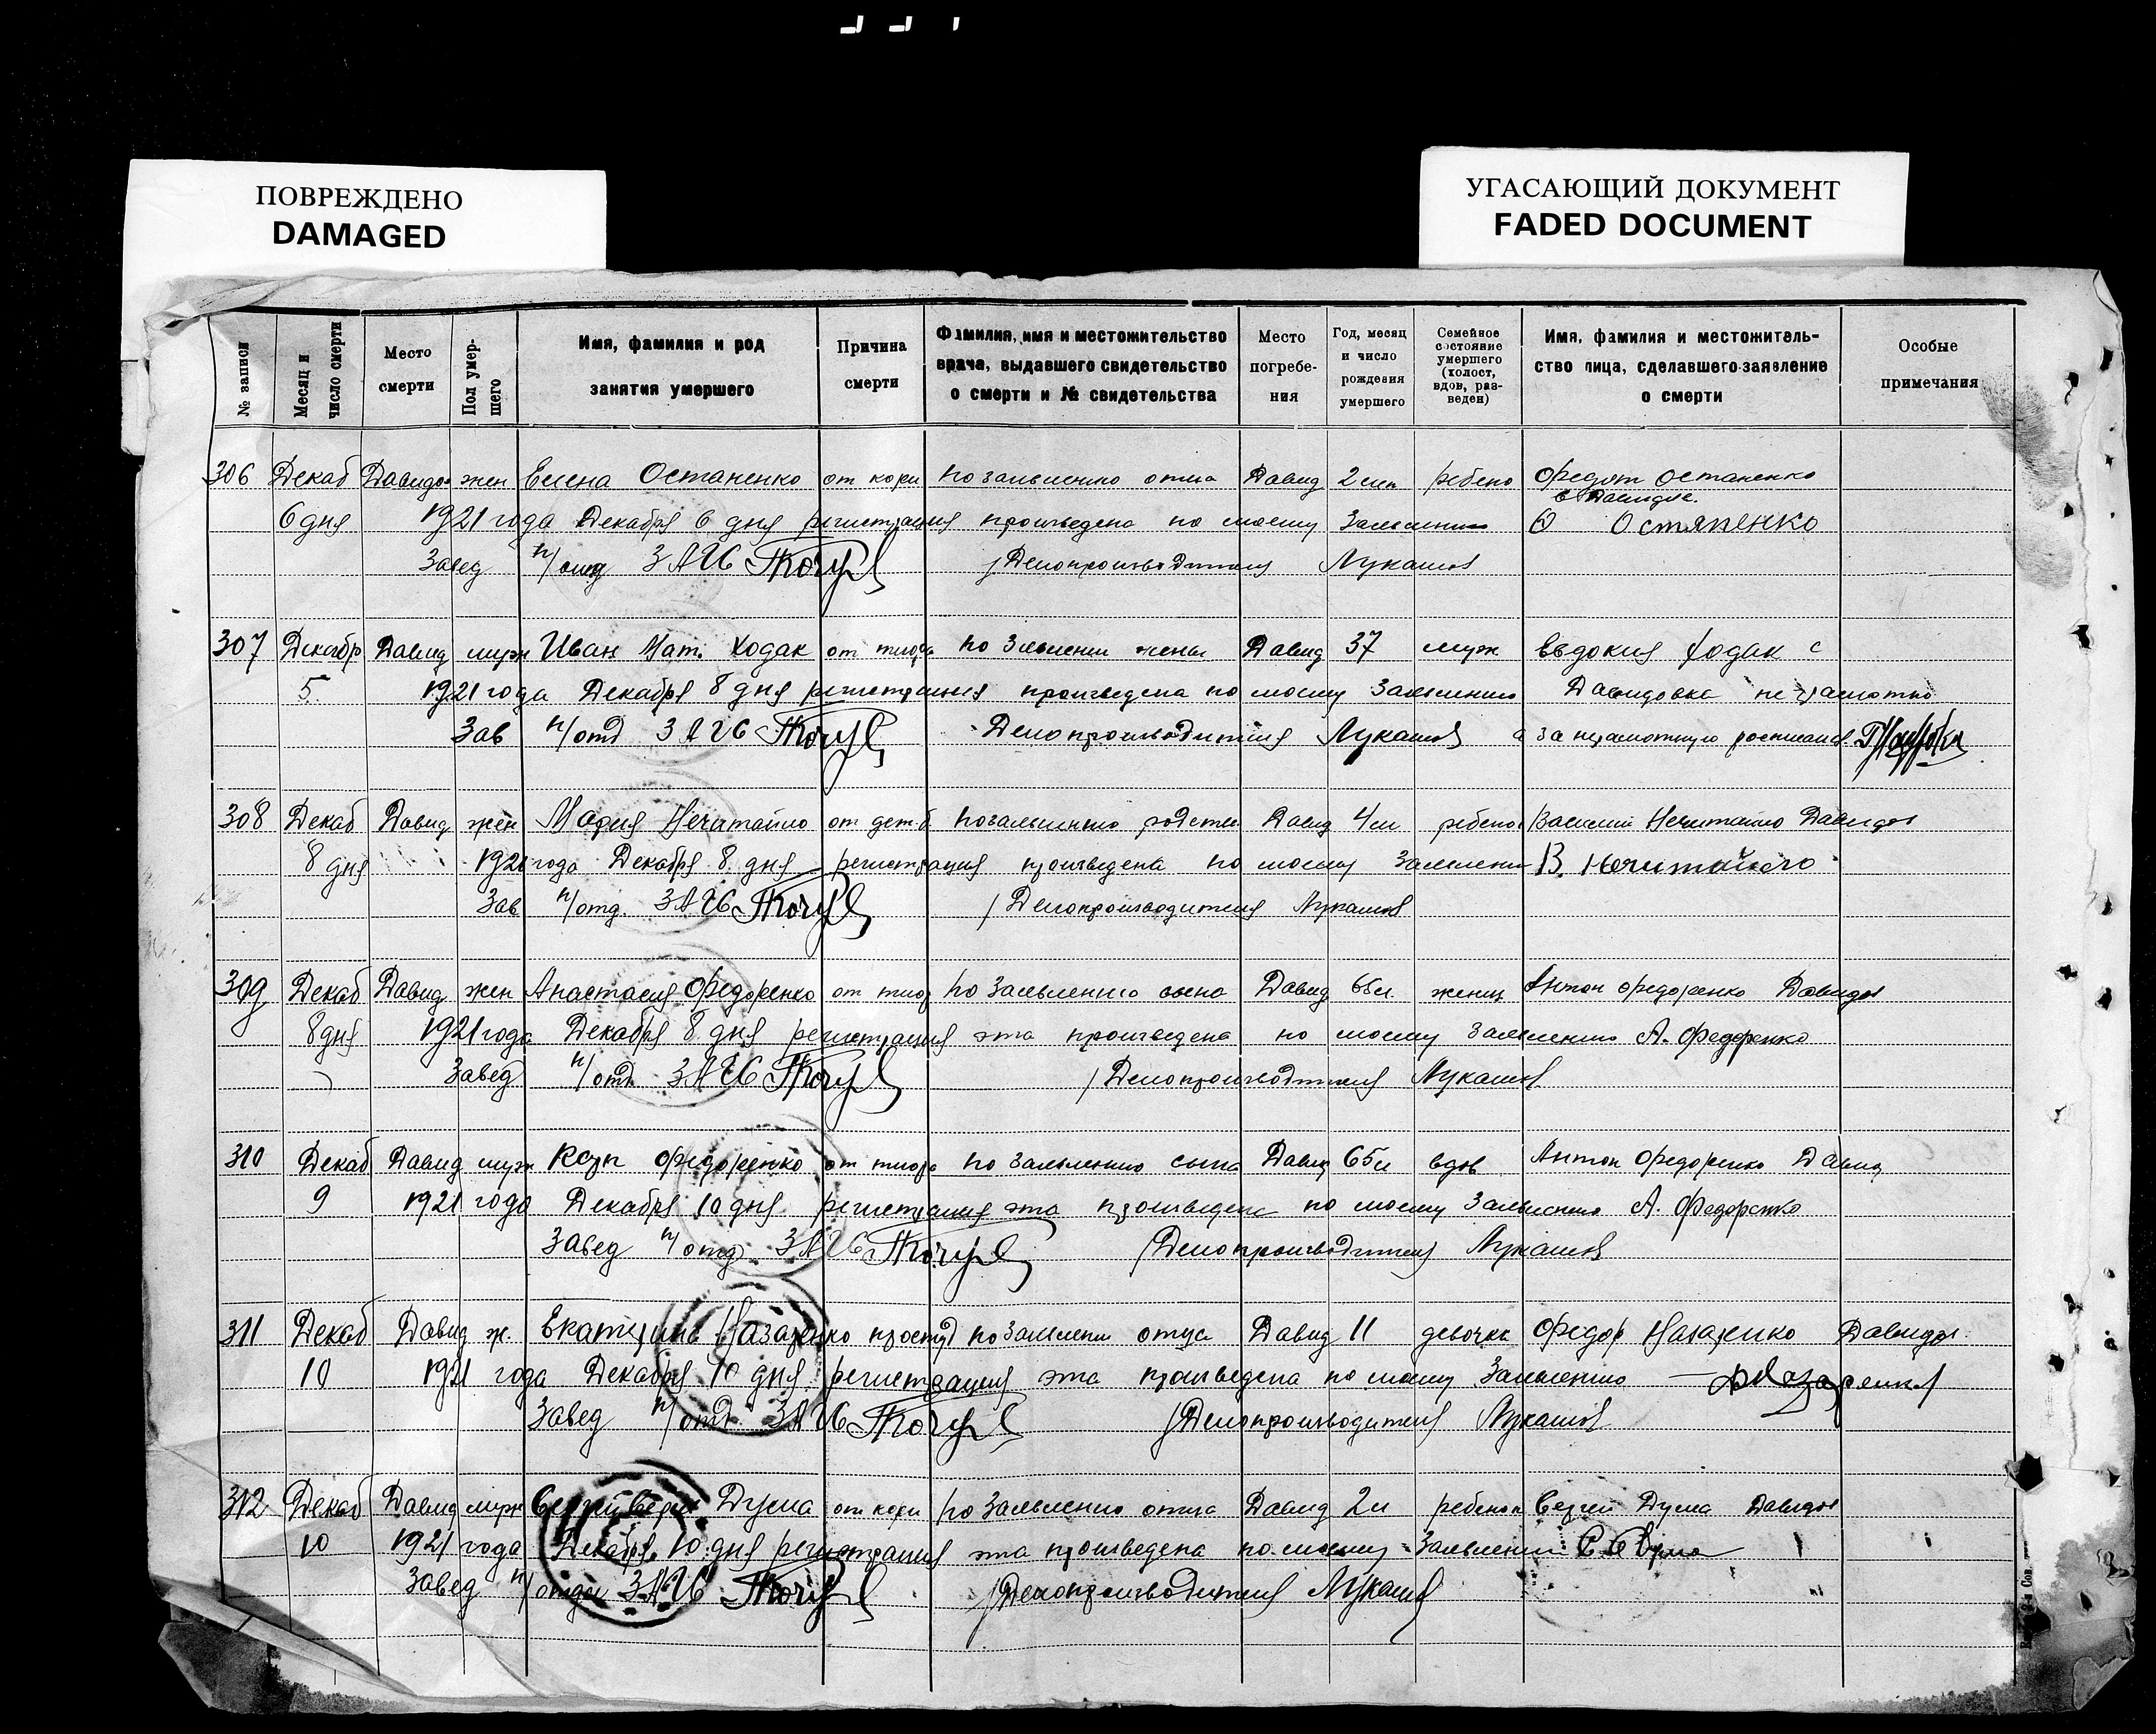 ПОВРЕЖДЕНО
DAMAGED
УГАСАЮЩИЙ ДОКУМЕНТ
FADED DOCUMENT
№ записи
Месяц и число смерти
Место смерти
Пол умершего
Имя, фамилия и род занятия умершего
Причина смерти
Фамилия, имя и местожительство врача, выдавшего свидетельство о смерти и № свидетельства
Место погребения
Год, месяц и число рождения умершего
Семейное состояние умершего (холост, вдов, разведен)
Имя, фамилия и местожительство лица, сделавшего заявление о смерти
Особые примечания
306 Декаб Давидо жен Елена Остапенко от кори по заявлению отца Давид 2 ребено Федот Остапенко
с Давидов.
6 дня 1921 года Декабря 6 дня регистрация произведена по моему Заявлению Ф Остапенко
Завед п/отд ЗАГС Делопроизводитель Лукашов
307 Декабр Давид муж Иван Мат. Ходак от тифа по Заявлени жены Давид 37 муж Евдокия Ходак с
5. 1921 года Декабря 8 дня регистрация произведена по моему Заявлению Давидовка неграмотна
Зав п/отд ЗАГС Делопроизводителя Лукашов а за неграмотную
308 Декаб Давид жен Мария Нечитайло от дет б по заявлению родств Давид 4 ребено Василий Нечитайло Давидов
8 дня 1921 года Декабря 8 дня регистрация произведена по моему Заявлени В. Нечитайло
Зав п/отд. ЗАГС Делопроизводителя Лукашов
309 Декаб Давид жен Анастасия Федоренко от тиф по Заявлению сына Давид женщ Антон Федоренко Давидов
8 дня 1921 года Декабря 8 дня регистрация эта произведена по моему Заявлению А. Федоренко
Завед п/отд ЗАГС Делопроизводителя Лукашов
310 Декаб Давид муж Федоренко от тифа по Заявлению сына Давид 65 л вдов Антон Федоренко Давид
9 1921 года Декабря 10 дня регистрация эта произведена по моему Заявлению А. Федоренко
Завед п/отд ЗАГС Делопроизводителя Лукашов
311 Декаб Давид ж. Екатерина Назаренко простуд по Заявлени отца Давид 11 девочка Федор Назаренко Давидов.
10 1921 года Декабря 10 дня регистрация эта произведена по моему Заявлению Назаренко
Завед п/отд. ЗАГС Делопроизводителя Лукашов
312 Декаб Давид муж Дума от кори по Заявлению отца Давид 2 л ребенок Сергей Дума Давидов
10 1921 года Декабря 10 дня регистрация эта произведена по моему Заявлению С Дума
Завед п/отдел ЗАГС Делопроизводителя Лукашов